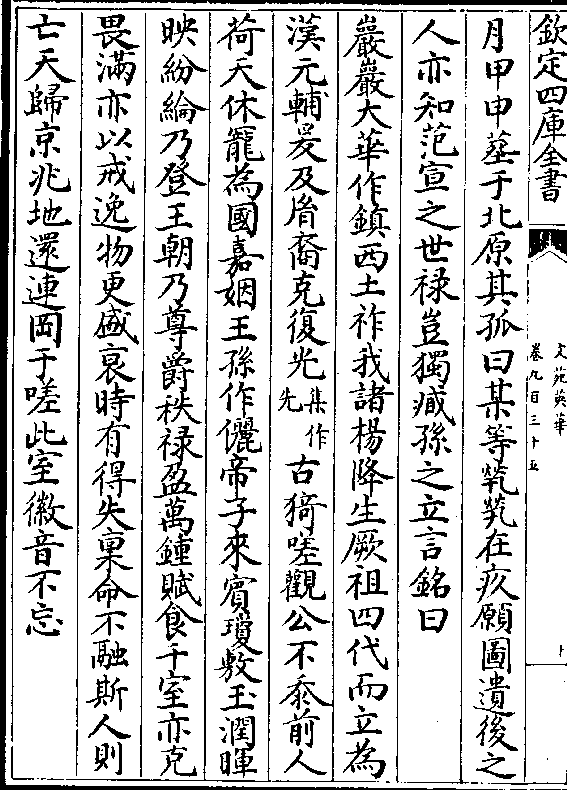 欽定四庫全書
文苑英華
卷九百三十五
月甲申葬于北原其孤曰某等煢煢在疚願圖遺後之
人亦知范宣之世禄豈獨臧孫之立言銘曰
巖巖大華作鎮西土祚我諸楊降生厥祖四代而立為
漢元輔爰及胄裔克復光集作先古猗嗟觀公不忝前人
荷天休寵為國嘉姻王孫作儷帝子來賓瓊敷玉潤暉
映紛綸乃登王朝乃尊爵秩禄盈萬鍾賦食千室亦克
畏滿亦以戒逸物更盛衰時有得失稟命不融斯人則
亡天歸京兆地還連岡于嗟此室徽音不忘